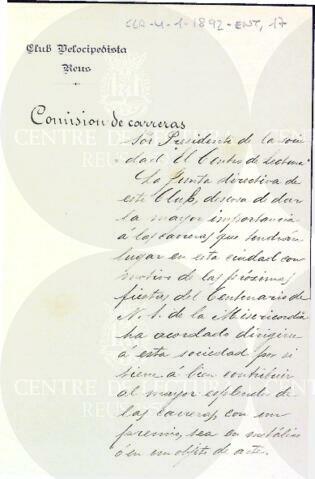 CLR-U-1-1892-ENT, 17
Club Velocipedista
Reus
Comision de carreras
Sor Presidente de la socie
dad "El Centro de Lectura"
La Junta directiva de
este Club, deseosa de dar
la mayor importancia
á las carreras que tendrán
lugar en esta ciudad con
motivo de las próximas
fiestas del Centenario de
N. S. de la Misericordia
ha acordado dirigirse
á esta sociedad por si
tiene a bien contribuir
al mayor esplendor de
las carreras, con un
premio, sea en metálico
ó en un objeto de arte.
CENTRE DE LECTURA
REUS
CENTRE DE LECTURA
REUS